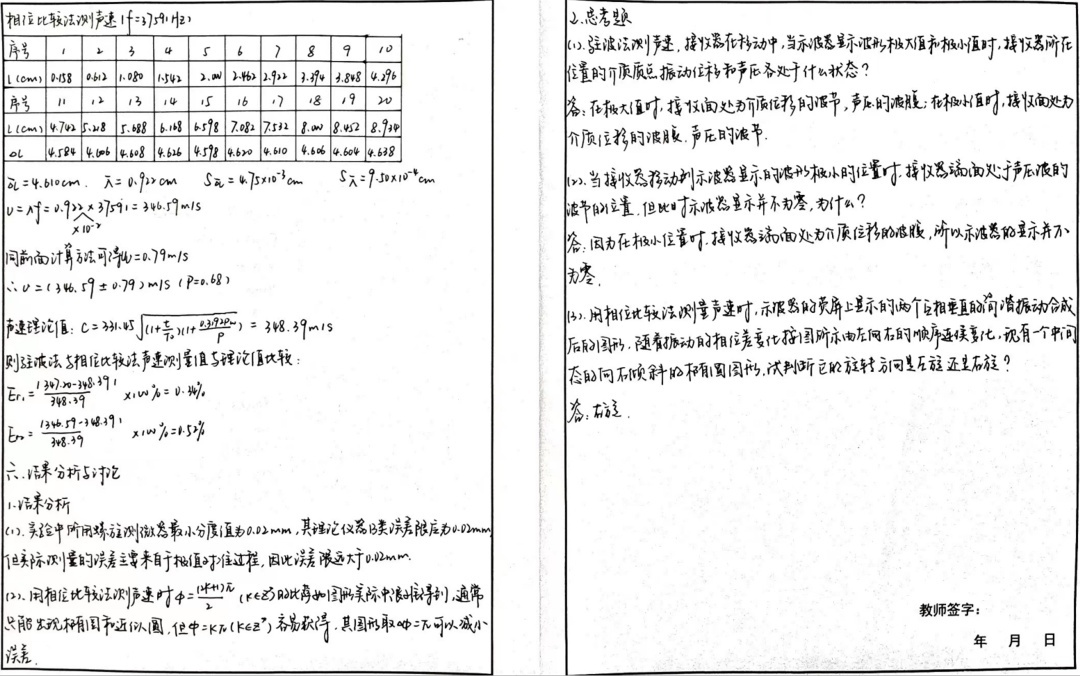 相位比较法测声速 (f=37591Hz)
序号 1 2 3 4 5 6 7 8 9 10
L(cm) 0.158 0.612 1.080 1.542 2.00 2.462 2.922 3.394 3.848 4.296
序号 11 12 13 14 15 16 17 18 19 20
L(cm) 4.742 5.218 5.688 6.168 6.598 7.082 7.532 8.00 8.452 8.934
ΔL 4.584 4.606 4.608 4.626 4.598 4.620 4.610 4.606 4.604 4.638
ΔL=4.610cm. λ=0.922cm S ΔL=4.75×10⁻³cm Sλ=9.50×10⁻⁴cm
υ=λf=0.922×37591=346.59m/s
×10⁻²
同前面计算方法可得u=0.79m/s
∴υ=(346.59±0.79)m/s (P=0.68)
声速理论值: C=331.45√(1+t/T₀)(1+0.3192Pw/P) = 348.39m/s
则驻波法与相位比较法声速测量值与理论值比较:
Er₁=|347.20-348.39|/348.39 ×100%=0.34%
Er₂=|346.59-348.39|/348.39 ×100%=0.52%
六.结果分析与讨论
1.结果分析
(1).实验中所用螺旋测微器最小分度值为0.02mm,其理论仪器B类误差限应为0.02mm
但实际测量的误差主要来自于极值对准过程,因此误差限远大于0.02mm.
(2).用相位比较法测声速时φ=(2k+1)π/2 (k∈Z)的比萨如图形实际中很难得到,通常
只能出现椭圆和近似圆,但φ=kπ(k∈Z)容易获得,其图形取Δφ=π可以减小
误差.
2.思考题
(1).驻波法测声速,接收器在移动中,当示波器显示波形极大值和极小值时,接收器所在
位置的介质质点振动位移和声压各处于什么状态?
答:在极大值时,接收面处为介质位移的波节,声压的波腹;在极小值时,接收面处为
介质位移的波腹,声压的波节.
(2).当接收器移动到示波器显示的波形极小的位置时,接收器端面处于声压波的
波节的位置,但此时示波器显示并不为零,为什么?
答:因为在极小位置时,接收器端面处为介质位移的波腹,所以示波器的显示并不
为零.
(3).用相位比较法测量声速时,示波器的荧屏上显示的两个互相垂直的简谐振动合成
后的图形,随着振动的相位差变化按图所示由左向右的顺序连续变化,现有一个中间
态的向右倾斜的椭圆图形,试判断它的旋转方向是左旋还是右旋?
答:右旋.
教师签字:
年 月 日